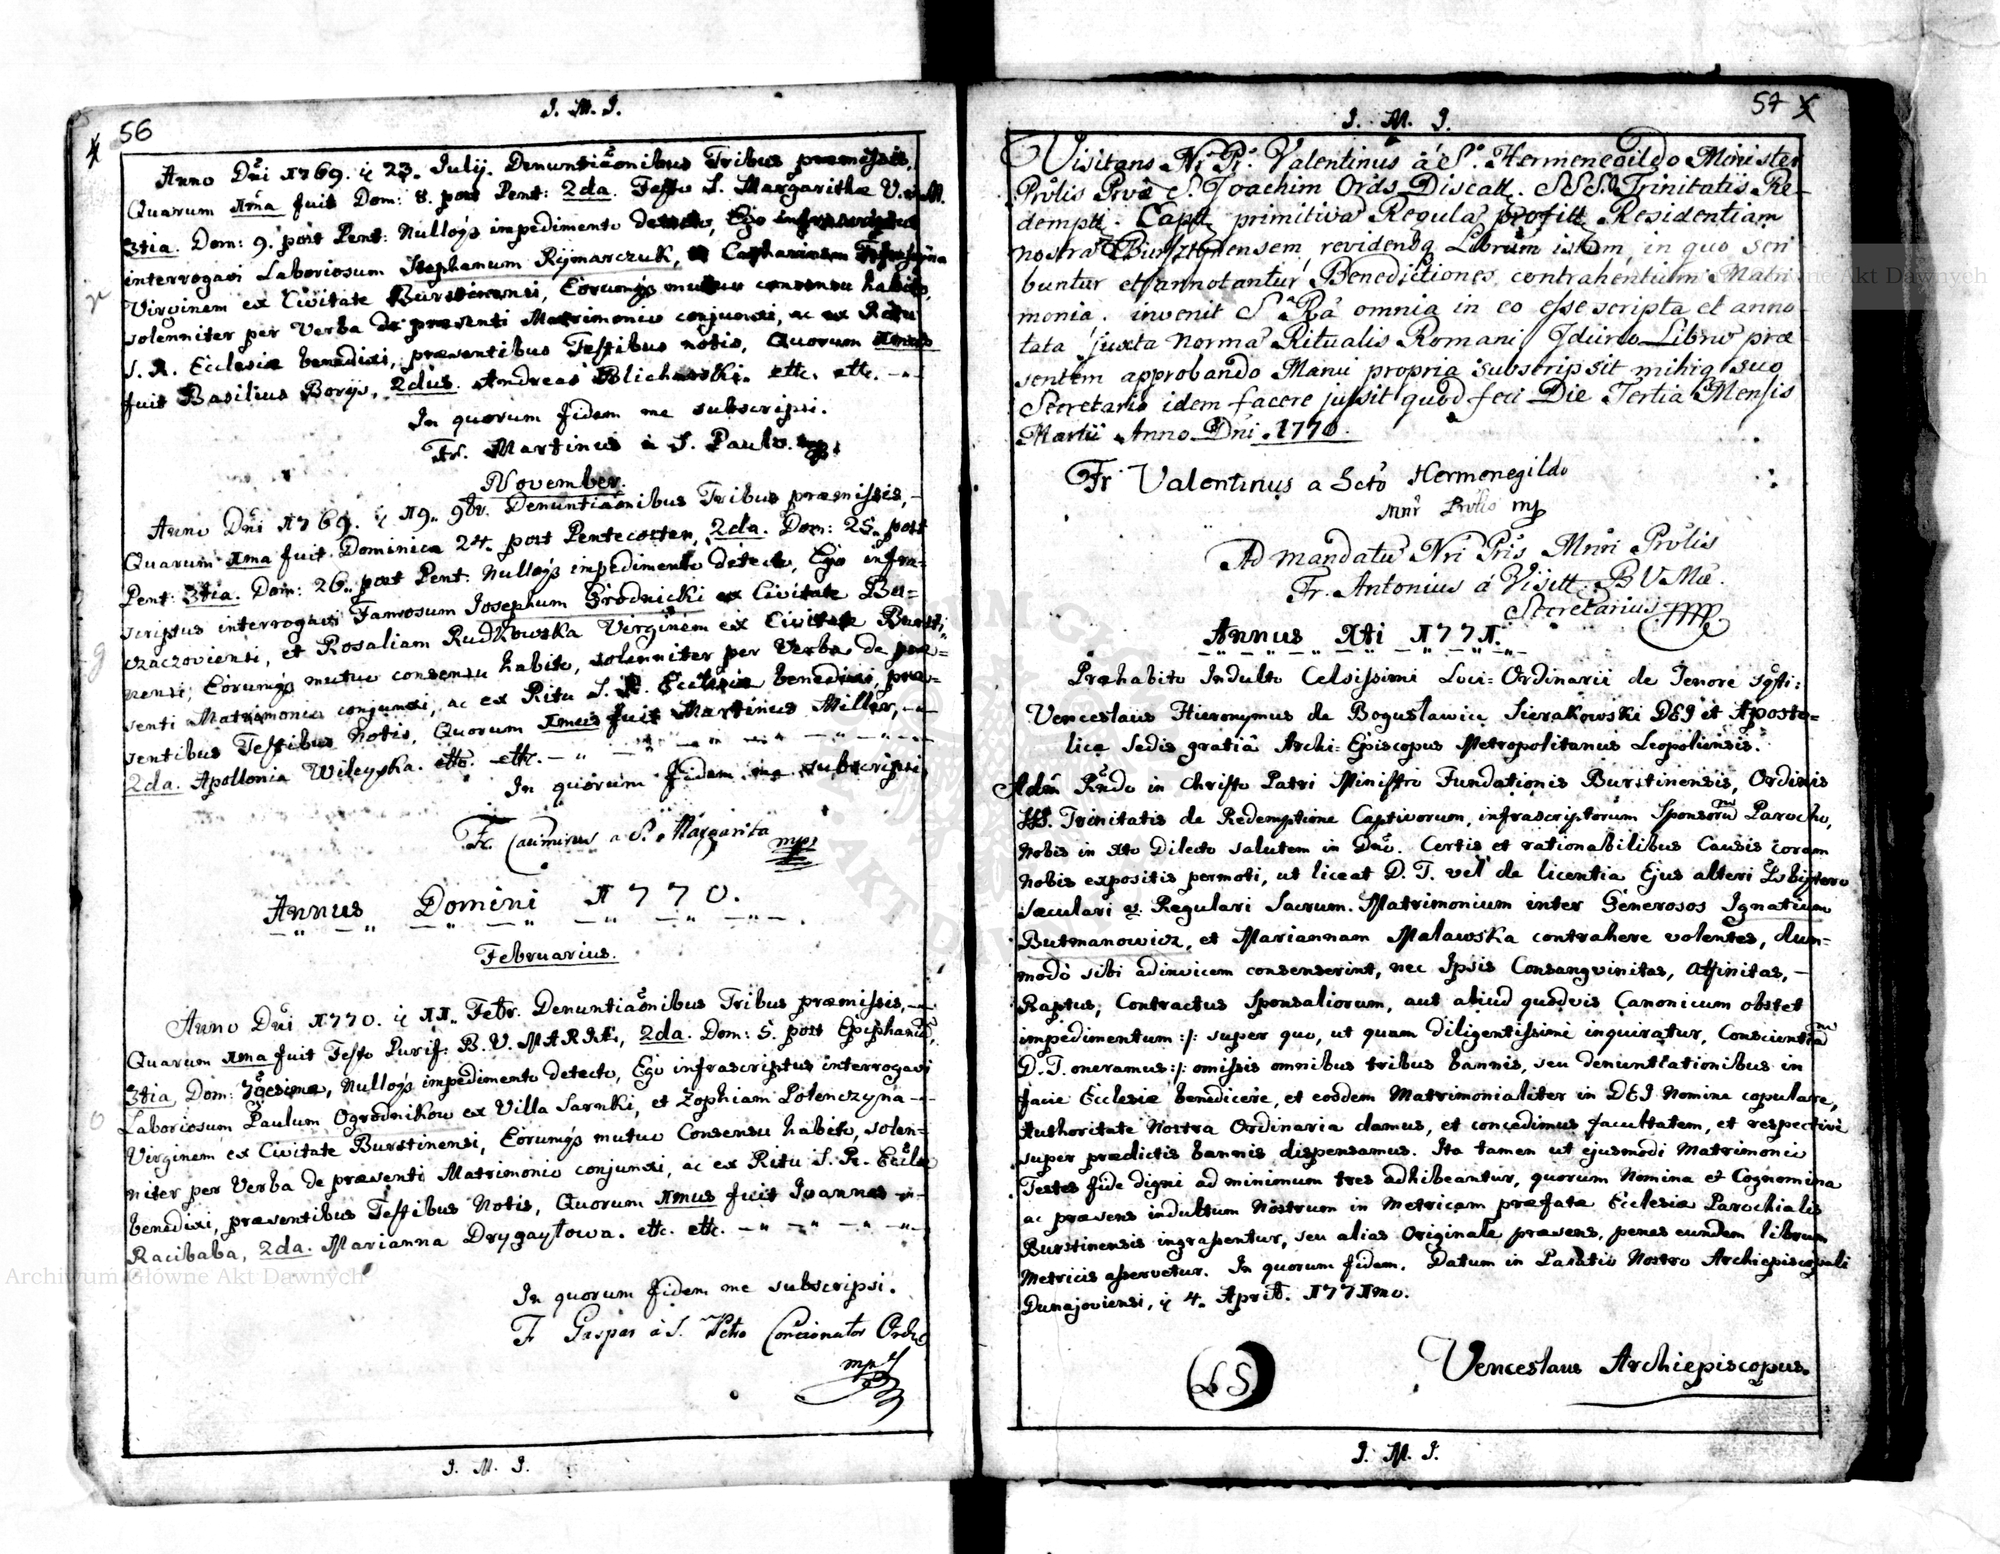 J. M. J.
56
Anno Dni 1769. ÿ 23. Julij. Denuntiaonibus Tribus præmissis.
Quarum 1ma fuit Dom: 8. post Pent: 2da. Festo S. Margarithæ V. et M.
3tia. Dom: 9. post Pent: Nulloq́s impedimento detecto, Ego infrascriptus
interrogavi Laboriosum Stephanum Rÿmarczuk, et Catharinam
Virginem ex Civitate Burstinensi, Eorumq́s mutuo consensu habito,
solenniter per Verba de præsenti Matrimonio conjunxi, ac ex Ritu
S. R. Ecclesiæ benedixi, præsentibus Testibus notis, Quorum 1mus
fuit Basilius Borÿs, 2dus. Andreas Blicharski. etc. etc.
In quorum fidem me subscripsi.
Fr. Martinus à S. Paulo. mp.
November.
Anno Dni 1769. ÿ 19. 9br. Denuntiaonibus Tribus præmissis,
Quarum 1ma fuit Dominica 24. post Pentecosten, 2da. Dom: 25. post
Pent: 3tia. Dom: 26. post Pent: Nulloq́s impedimento detecto, Ego infra-
scriptus interrogavi Famosum Josephum Grodnicki ex Civitate Bu-
czaczoviensi, et Rosaliam Rudkowska Virginem ex Civitate Bursti-
nensi, Eorumq́s mutuo consensu habito, solenniter per Verba de præ-
senti Matrimonio conjunxi, ac ex Ritu S. R. Ecclesiæ benedixi, præ-
sentibus Testibus Notis, Quorum 1mus fuit Martinus Miller,
2da. Apollonia Wileyska. etc. etc.
In quorum fidem me subscripsi
Fr. Casimirus a S. Margarita mp
Annus Domini 1770.
Februarius.
Anno Dni 1770. ÿ 11. Febr. Denuntiaonibus Tribus præmissis,
Quarum 1ma fuit Festo Purif: B. V. MARIÆ, 2da. Dom: 5. post Epiphaniã,
3tia. Dom: 70gesimæ, Nulloq́s impedimento detecto, Ego infrascriptus interrogavi
Laboriosum Paulum Ogrodnikow ex Villa Sarnki, et Zophiam Polenczÿna
Virginem ex Civitate Burstinensi, Eorumq́s mutuo Consensu habito, solen-
niter per Verba de præsenti Matrimonio conjunxi, ac ex Ritu S. R. Ecclæ
benedixi, præsentibus Testibus Notis, Quorum 1mus fuit Joannes
Racibaba, 2da. Marianna Drygaytowa. etc. etc.
In quorum fidem me subscripsi.
F Gaspar à S. Petro Concionator Ords
mp
J. M. J.
J. M. J.
57
Visitans Nr Pr. Valentinus à S. Hermenegildo Minister
Prõlis Prvæ S. Joachim Ords Discalt. SSS. Trinitatis Re-
dempt. Capt primitivã Regulã profitt Residentiam
nostrã Bursztÿnensem, revidendoq́ Librum istum, in quo scri
buntur et annotantur Benedictiones contrahentium Matri
monia. invenit S. Pã omnia in eo esse scripta et anno
tata juxta normã Ritualis Romani Idcirco Librũ præ
sentem approbando Manu propria subscripsit mihiq suo
Secretario idem facere jussit quod feci Die Tertia Mensis
Martii Anno Dni 1770.
Fr Valentinus a Scto Hermenegildo
Mnr Prõlis mp
Ad mandatũ Nri Pris Mnri Prõlis
Fr. Antonius á Visitt. B V Mæ.
Secretarius
Annus Xti 1771.
Præhabito Indulto Celsissimi Loci Ordinarii de Tenore sqsti:
Venceslaus Hieronymus de Boguslawice Sierakowski DEI et Aposto-
licæ Sedis gratiâ Archi-Episcopus Metropolitanus Leopoliensis.
Adm Rndo in Christo Patri Ministro Fundationis Burstinensis, Ordinis
SSS. Trinitatis de Redemptione Captivorum, infrascriptorum Sponsorũ Parocho,
Nobis in Xto Dilecto salutem in Dno. Certis et rationabilibus Causis coram
Nobis expositis permoti, ut liceat D. T. vel de licentia Ejus alteri Psbÿtero
Sæculari et Regulari Sacrum. Matrimonium inter Generosos Ignatium
Butmanowicz, et Mariannam Malawska contrahere volentes, dum-
modò sibi adinvicem consenserint, nec Ipsis Consangvinitas, Affinitas,
Raptus, Contractus Sponsaliorum, aut aliud quodvis Canonicum obstet
impedimentum :/: super quo, ut quam diligentissimè inquiratur, Conscientiã
D. T. oneramus :/: omissis omnibus tribus bannis, seu denuntiationibus in
facie Ecclesiæ benedicere, et eoddem Matrimonialiter in DEI Nomine copulare,
Authoritate Nostra Ordinaria damus, et concedimus facultatem, et respectivè
super prædictis bannis dispensamus. Ita tamen ut ejusmodi Matrimonio
Testes fide digni ad minimum tres adhibeantur, quorum Nomina et Cognomina
ac præsens indultum Nostrum in Metricam præfatæ Ecclesiæ Parochialis
Burstinensis ingrassentur, seu alias Originale præsens, penes eundem librum
Metricis asservetur. In quorum fidem. Datum in Palatio Nostro Archiepiscopali
Dunajoviensi, ÿ 4. April. 1771mo.
LS
Venceslaus Archiepiscopus.
J. M. J.
Archiwum Główne Akt Dawnych